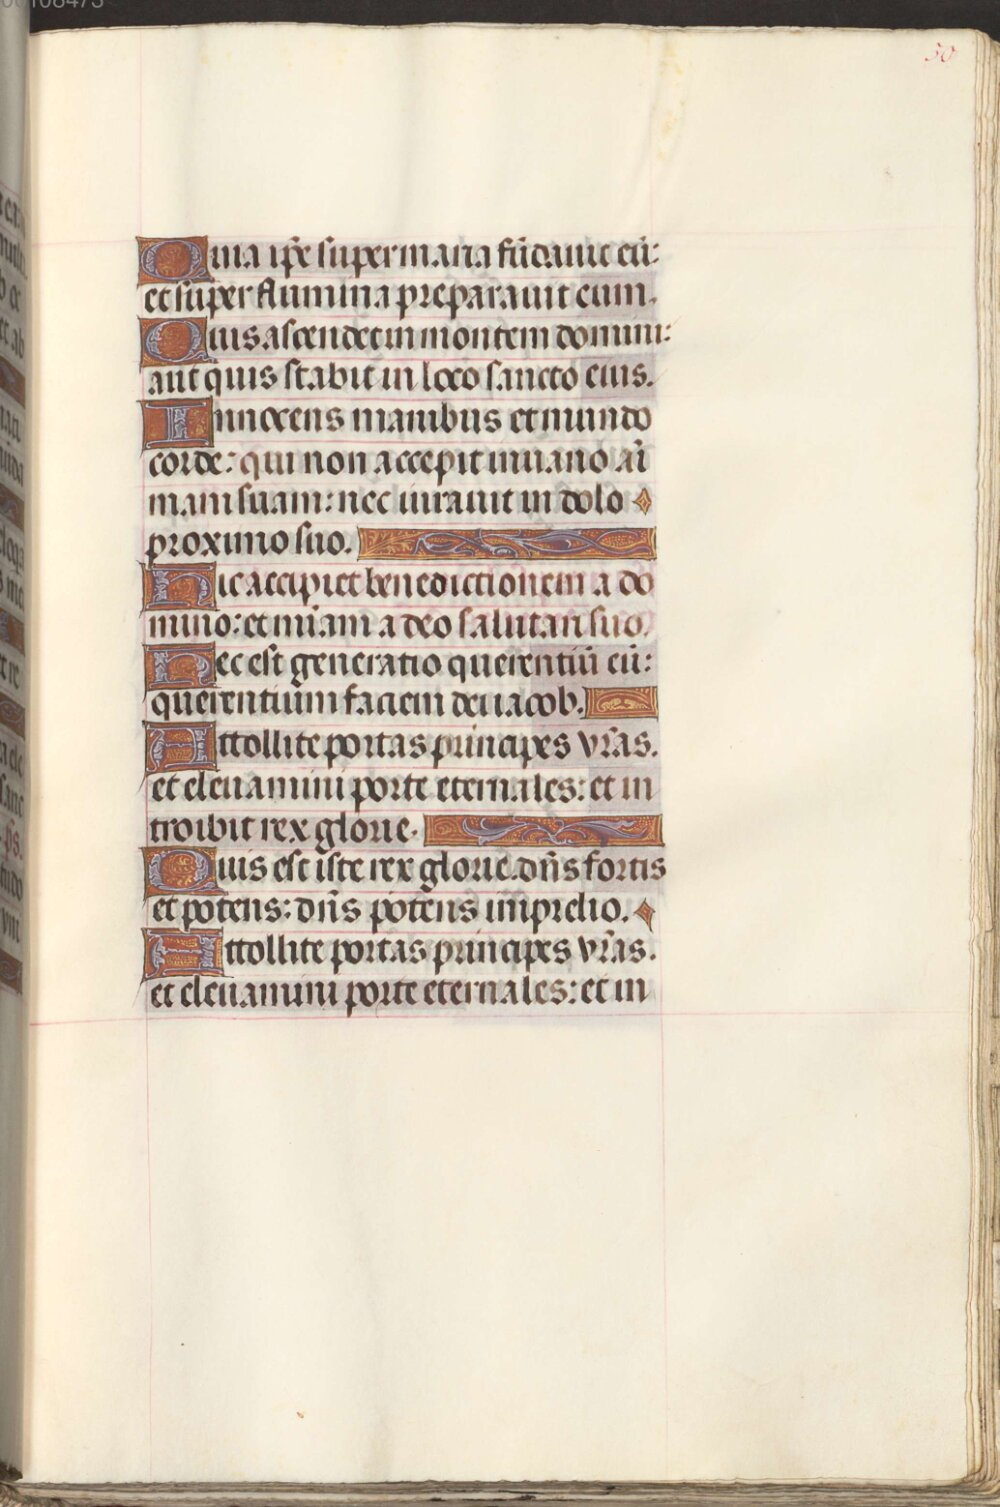 50
Quia ip̃e super maria fũdauit eũ:
et super flumina preparauit eum.
Quis ascendet in montem domini:
aut quis stabit in loco sancto eius.
Innocens manibus et mundo
corde: qui non accepit in uano aĩ
mam suam: nec iurauit in dolo
proximo suo.
Hic accipiet benedictionem a do
mino: et mĩam a deo salutari suo.
Hec est generatio querentiũ eũ:
querentium faciem dei iacob.
Attollite portas principes vr̃as.
et eleuamini porte eternales: et in
troibit rex glorie.
Quis est iste rex glorie. dñs fortis
et potens: dñs potens in prelio.
Attollite portas principes vr̃as.
et eleuamini porte eternales: et in